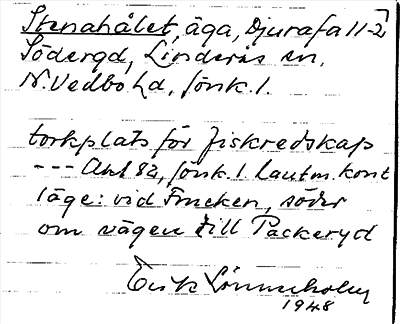 Stenahålet, äga, Djurafa 11-2,
Södergd, Linderås sn,
N. Vedbo hd, Jönk. l.
torkplats för fiskredskap
--- Akt 82, Jönk. l. lantm. kont
läge: vid Fmcken, söder
om vägen till Packeryd
Erik Lönnerholm
1948